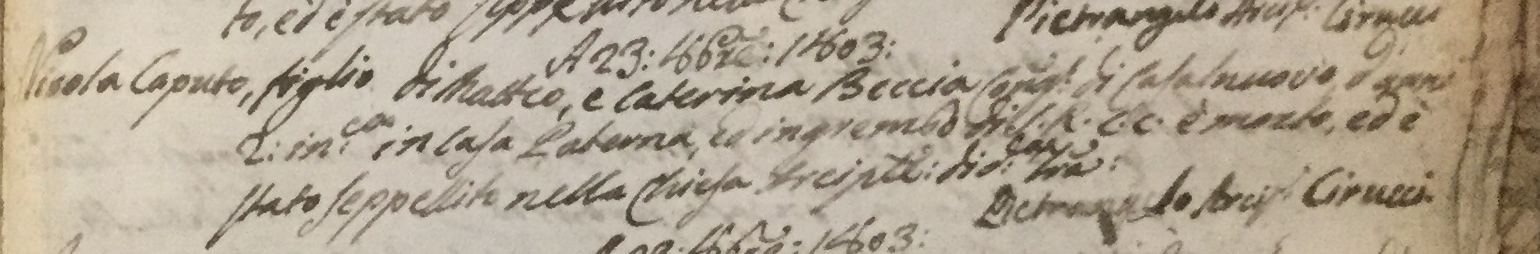 to, ed è stato seppellito nella Pietrangelo Arcip. Cirucci
A 23: 1803:
Nicola Caputo, figlio di Matteo, e Caterina Beccia Coniug.i di Casalnuovo, d'anni
2: in c.ca in Casa Paterna, ed in grembo di S. R. C. C. è morto, ed è
stato seppellito nella Chiesa Arcip.le: di d.a Trã:
Pietrangelo Arcip. Cirucci
1803: